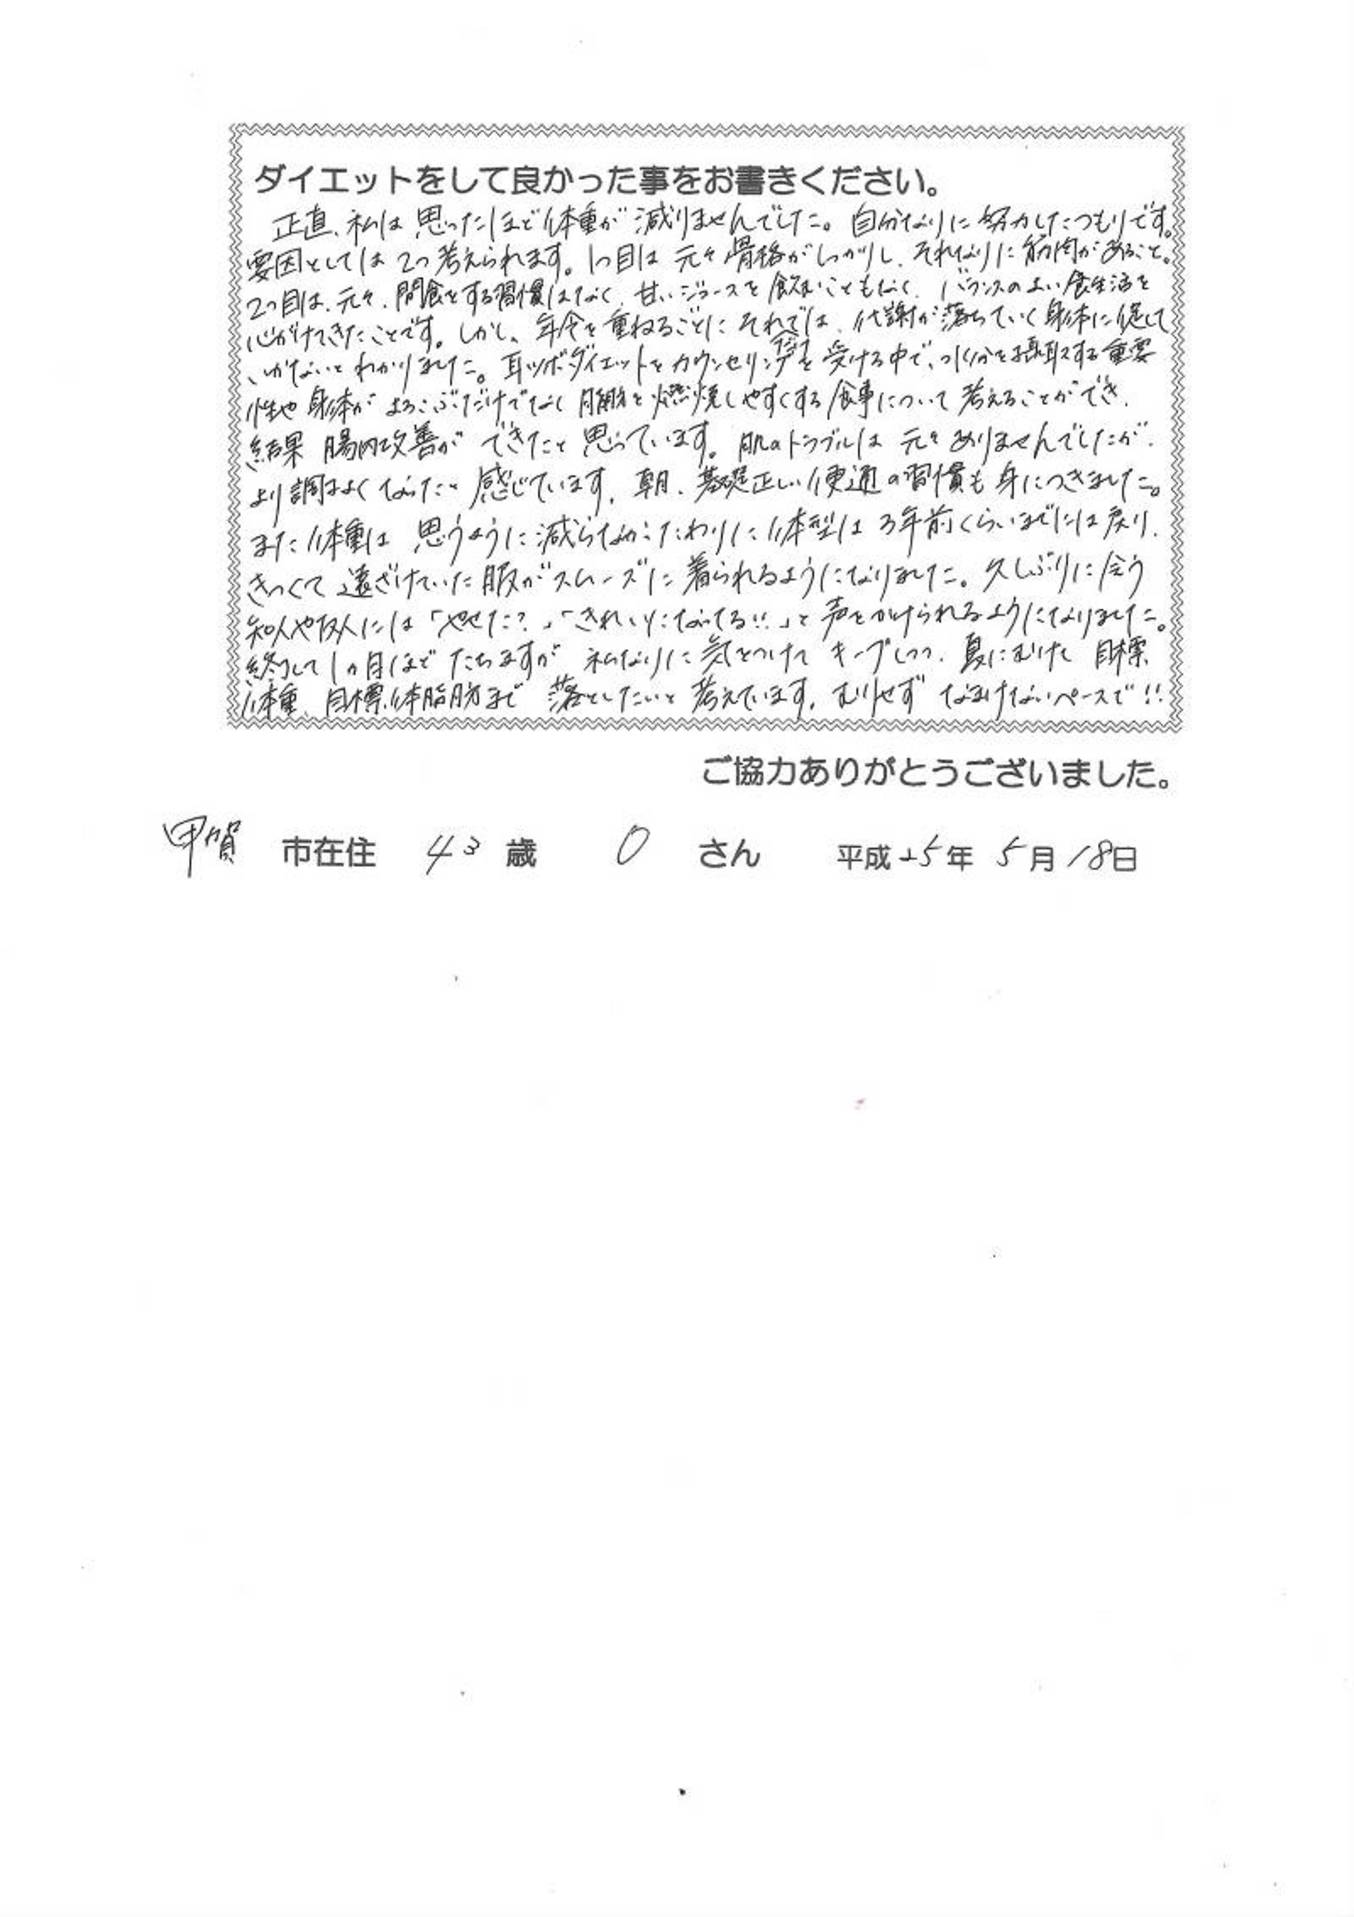 ダイエットをして良かった事をお書きください。
正直、私は思ったほど体重が減りませんでした。自分なりに努力したつもりです。
要因としては2つ考えられます。1つ目は元々骨格がしっかりし、それなりに筋肉があること。
2つ目は、元々、間食をする習慣はなく、甘いジュースを飲むこともなく、バランスのよい食生活を
心がけてきたことです。しかし、年令を重ねるごとにそれでは、代謝が落ちていく身体に
いかないとわかりました。耳ツボダイエットとカウンセリングを受ける中で、水分を摂取する重要
性や身体がよろこぶだけでなく脂肪を燃焼しやすくする食事について考えることができ、
結果腸内改善ができたと思っています。肌のトラブルは元々ありませんでしたが、
より調子よくなったと感じています。朝、基礎正しい便通の習慣も身につきました。
また体重は思うように減らなかったわりに体型は3年前くらいまでには戻り、
きつくて遠ざけていた服がスムーズに着られるようになりました。久しぶりに会う
知人や友人には「やせた?」「きれいになってる!!」と声をかけられるようになりました。
終了して1ヵ月ほどたちますが私なりに気をつけてキープしつつ、夏にむけて目標
体重、目標体脂肪まで落としたいと考えています。むりせずなまけないペースで!!
ご協力ありがとうございました。
甲賀市在住 43歳 O さん 平成25年5月18日